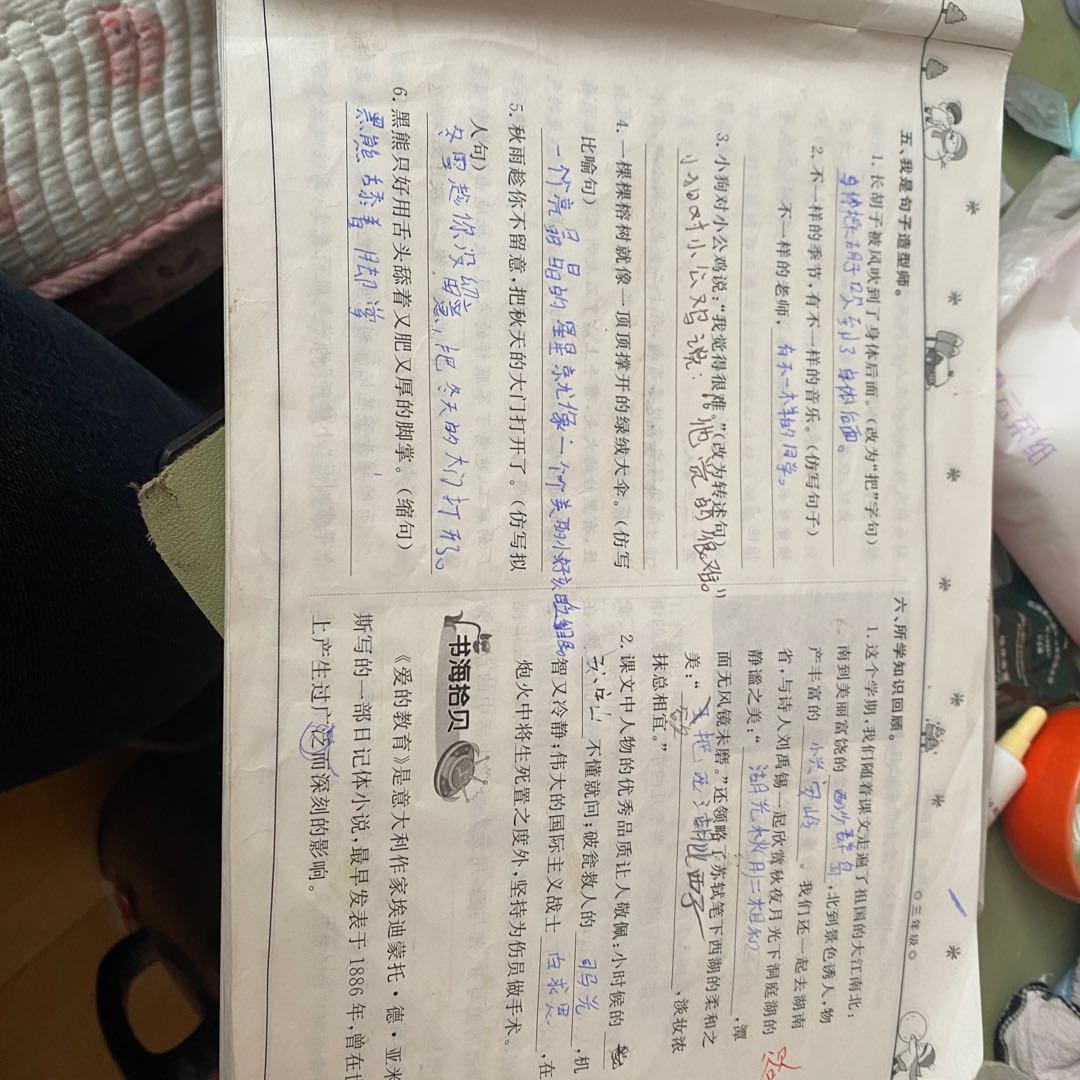 五、我是句子造型师。
1. 长胡子被风吹到了身体后面。（改为“把”字句）
到了身体后面。
2. 不一样的季节，有不一样的音乐。（仿写句子）
不一样的老师，有不一样的同学。
3. 小狗对小公鸡说：“我觉得很难。”（改为转述句）
小狗对小公鸡说：“他觉的很难。”
4. 一棵棵榕树就像一顶顶撑开的绿绒大伞。（仿写
比喻句）
一个个亮晶晶的星星京尤像一个个美丽小好
5. 秋雨趁你不留意，把秋天的大门打开了。（仿写拟
人句）
冬雪趁你没留意，把冬天的大门打开。
6. 黑熊只好用舌头舔着又肥又厚的脚掌。（缩句）
黑熊舔着脚掌
三年级
六、所学知识回顾。
1. 这个学期，我们随着课文走遍了祖国的大江南北：
南到美丽富饶的 西沙群岛，北到景色诱人，物
产丰富的 小兴安岭。我们还一起去湖南
省，与诗人刘禹锡一起欣赏秋夜月光下洞庭湖的
静谧之美：“湖光秋月二相和，潭
面无风镜未磨。”还领略了苏轼笔下西湖的柔和之
美：“欲把西湖比西子，淡妆浓
抹总相宜。”
2. 课文中人物的优秀品质让人敬佩：小时候的
不懂就问；破瓮救人的 司马光，机
智又冷静；伟大的国际主义战士 白求恩，在
炮火中将生死置之度外，坚持为伤员做手术。
书海拾贝
《爱的教育》是意大利作家埃迪蒙托·德·亚米
斯写的一部日记体小说，最早发表于1886年，曾在
上产生过广泛而深刻的影响。